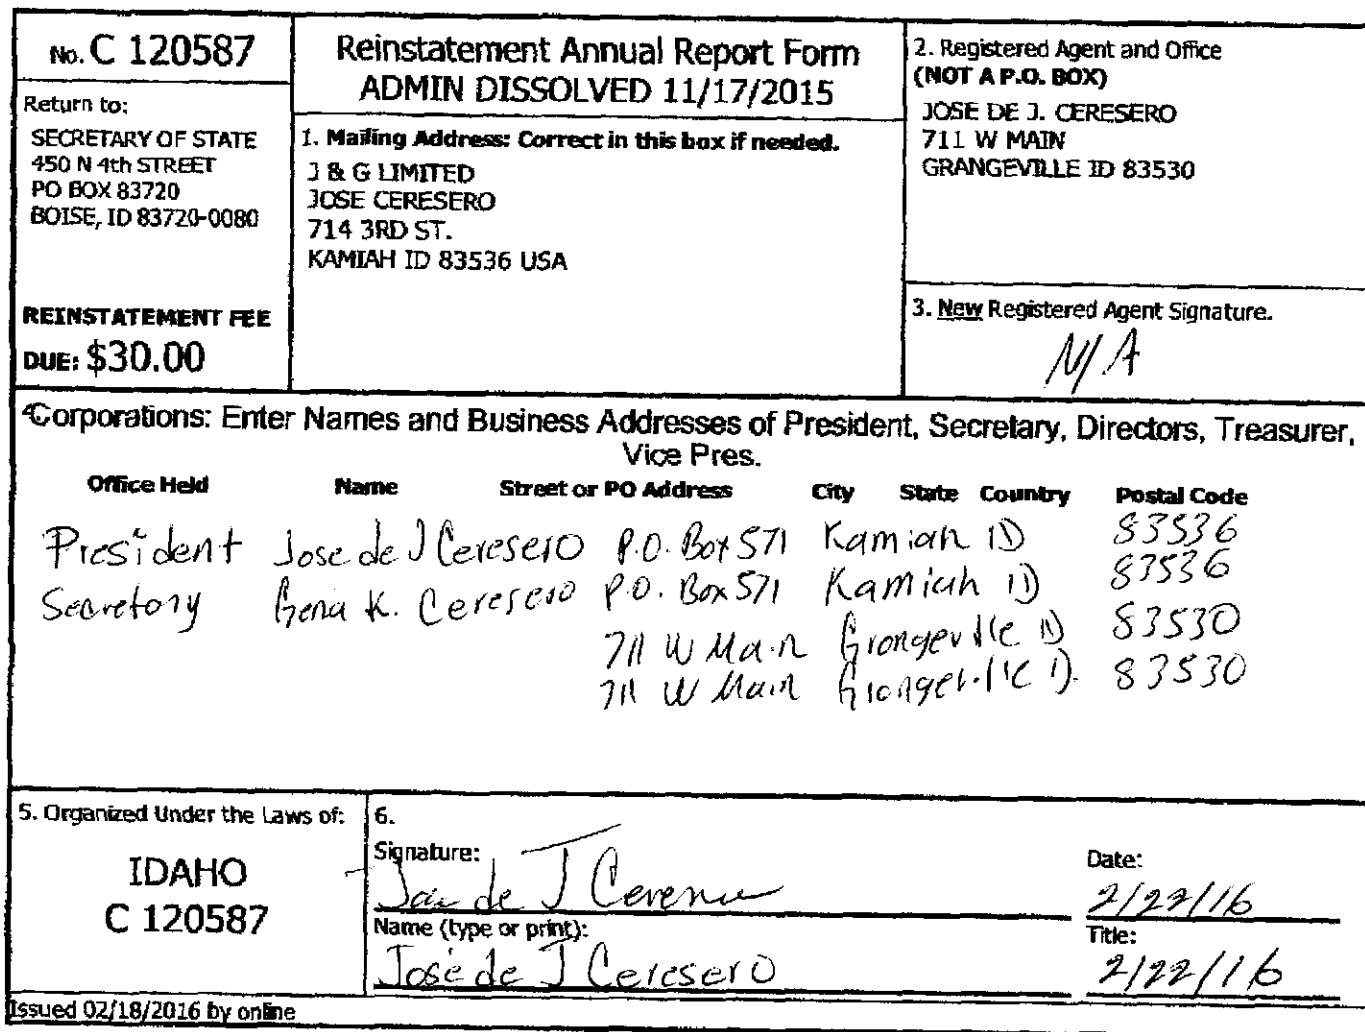 No. C 120587
Return to:
SECRETARY OF STATE
450 N 4th STREET
PO BOX 83720
BOISE, ID 83720-0080
REINSTATEMENT FEE
DUE: $30.00
Reinstatement Annual Report Form
ADMIN DISSOLVED 11/17/2015
1. Mailing Address: Correct in this box if needed.
J & G LIMITED
JOSE CERESERO
714 3RD ST.
KAMIAH ID 83536 USA
2. Registered Agent and Office
(NOT A P.O. BOX)
JOSE DE J. CERESERO
711 W MAIN
GRANGEVILLE ID 83530
3. New Registered Agent Signature.
N/A
4. Corporations: Enter Names and Business Addresses of President, Secretary, Directors, Treasurer,
Vice Pres.
Office Held Name Street or PO Address City State Country Postal Code
President Jose de J Ceresero P.O. Box 571 Kamiah ID 83536
Secretary Gena K. Ceresero P.O. Box 571 Kamiah ID 83536
711 W Main Grangeville ID 83530
711 W Main Grangeville ID. 83530
5. Organized Under the Laws of:
IDAHO
C 120587
6.
Signature: Jose de J Ceresero
Date: 2/22/16
Name (type or print): José de J Ceresero
Title: 2/22/16
Issued 02/18/2016 by online